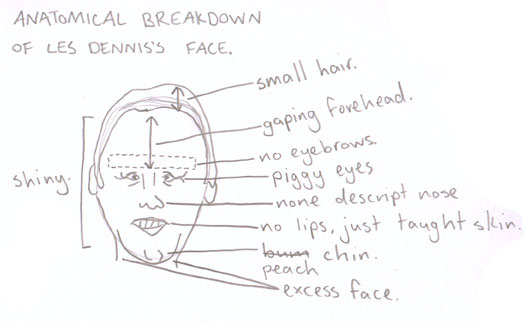 ANATOMICAL BREAKDOWN
OF LES DENNIS'S FACE.
small hair.
gaping forehead.
no eyebrows.
piggy eyes
shiny.
none descript nose
no lips, just taught skin.
bum chin.
peach
excess face.